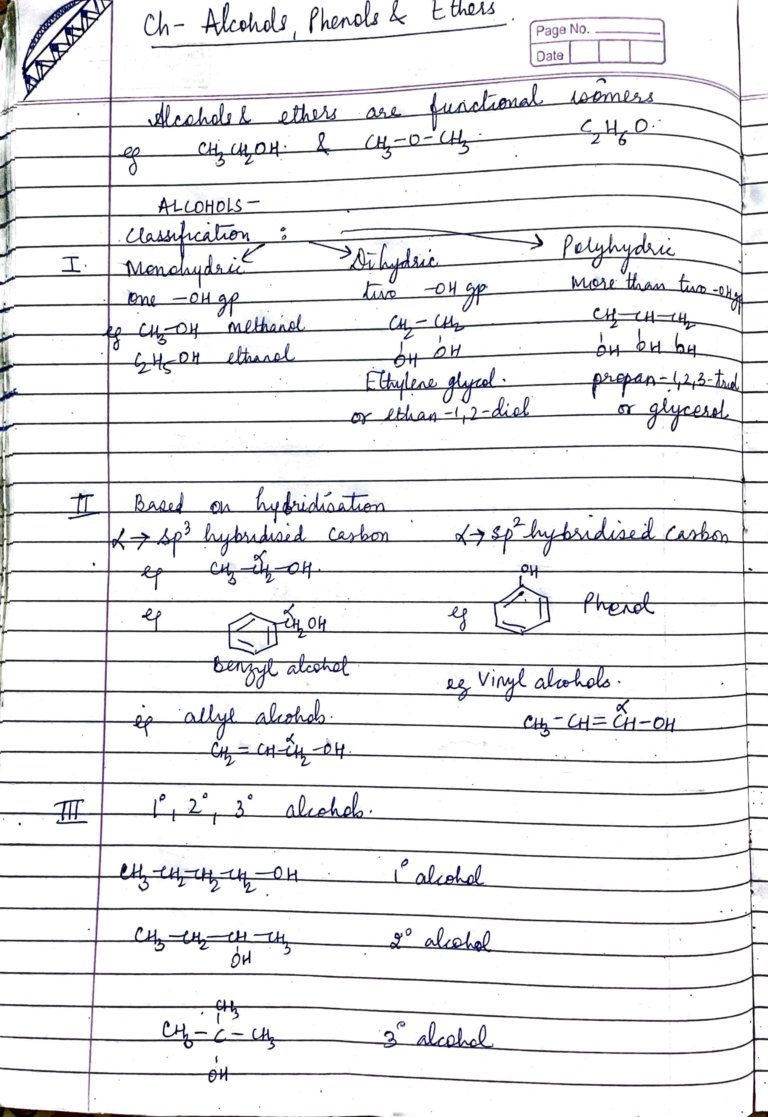 Ch- Alcohols, Phenols & Ethers.
Page No.
Date
Alcohols & ethers are functional isomers
eg CH₃CH₂OH & CH₃-O-CH₃ C₂H₆O
ALCOHOLS-
Classification :
I. Monohydric Dihydric Polyhydric
one -OH gp two -OH gp More than two -OH gp
eg CH₃-OH methanol CH₂-CH₂ CH₂-CH-CH₂
C₂H₅OH ethanol OH OH OH OH OH
Ethylene glycol. propan-1,2,3-triol
or ethan-1,2-diol or glycerol
II Based on hybridisation
α→ sp³ hybridised carbon α→ sp² hybridised carbon
eg CH₃-CH₂-OH α OH
eg α CH₂OH eg Phenol
Benzyl alcohol
eg Vinyl alcohols.
eg allyl alcohols. CH₃-CH=CH-OH α
CH₂=CH-CH₂-OH α
III 1°, 2°, 3° alcohols.
CH₃-CH₂-CH₂-CH₂-OH 1° alcohol
CH₃-CH₂-CH-CH₃ 2° alcohol
OH
CH₃
CH₃-C-CH₃ 3° alcohol
OH